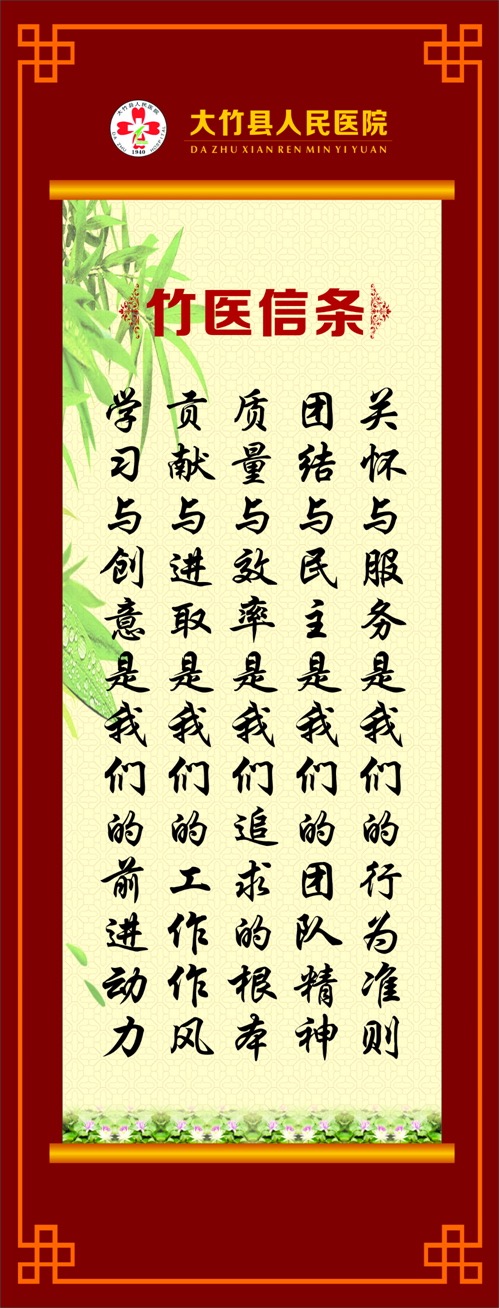 大竹县人民医院
DA ZHU XIAN REN MIN YI YUAN
大竹县人民医院
1940
竹医信条
关怀与服务是我们的行为准则
团结与民主是我们的团队精神
质量与效率是我们追求的根本
贡献与进取是我们的工作作风
学习与创意是我们的前进动力